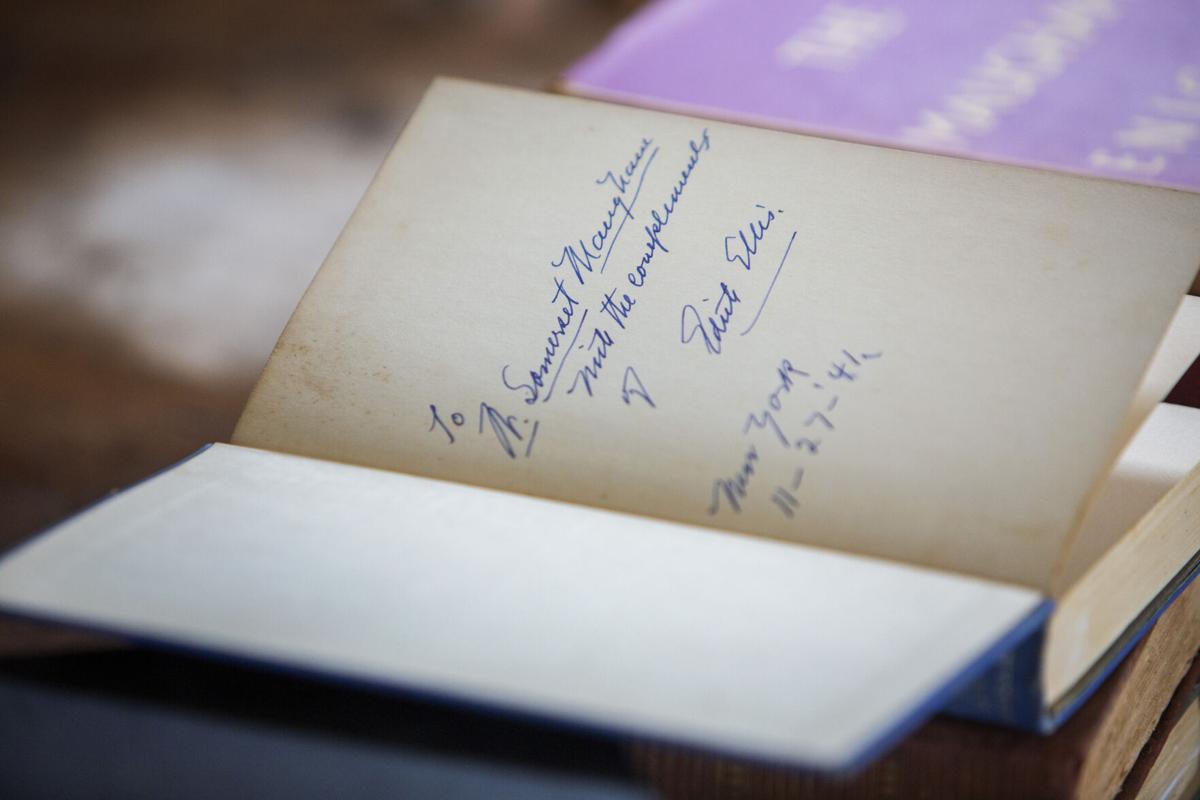 To
W. Somerset Maugham
with the complements
of
Edith Ellis.
New York
11-27-'41.
THE
MAUGHAM
ENIG